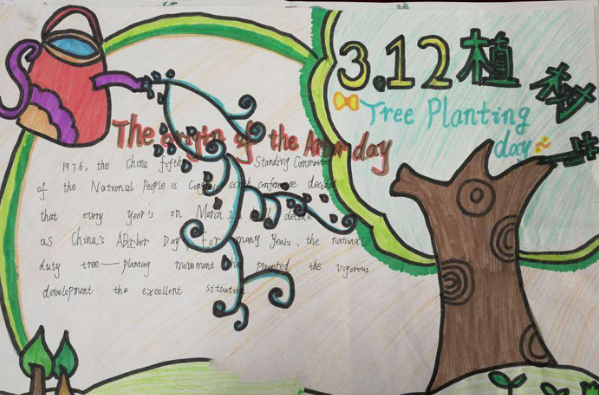 3.12植树
节
Tree Planting
day~
The origin of the Arbor day
1976, the China fifth Standing
of the National People is sixth conference decided
that every Year's on March
as China's Arbor Day For many Years, the national
duty tree—planting movement promoted the vigorous
development the excellent situation.